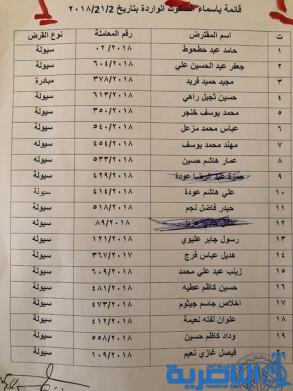 قائمة بأسماء الصكوك الواردة بتاريخ ٢٠١٨/21/2
ت اسم المقترض رقم المعاملة نوع القرض
١ حامد عبد حطحوط ٠٢/٢٠١٨ سيولة
٢ جعفر عبد الحسين علي ٦٠٤/٢٠١٨ سيولة
٣ مجيد حميد فريد ٣٧٨/٢٠١٨ مبادرة
٤ حسين ثجيل راهي ٦١٣/٢٠١٨ سيولة
٥ محمد يوسف خنجر ٣٥٠/٢٠١٨ سيوله
٦ عباس محمد مزعل ٥٤٠/٢٠١٨ سيوله
٧ مهند محمد يوسف ٥٧٠/٢٠١٨ سيوله
٨ عمار هاشم حسين ٥٣٣/٢٠١٨ سيوله
٩ حمزة عبد الرضا عودة ٤٢٩/٢٠١٨ سيوله
١٠ علي هاشم عودة ٤١٤/٢٠١٨ سيوله
١١ حيدر فاضل نجم ٥١٨/٢٠١٨ سيوله
١٢ ٨٩/٢٠١٨ سيوله
١٣ رسول جابر عليوي ١٢١/٢٠١٨ سيوله
١٤ هديل عباس فرج ٣٦٧/٢٠١٧ سيوله
١٥ زينب عبد علي محمد ٦٠٩/٢٠١٨ سيوله
١٦ حسين كاظم عطيه ٤٨١/٢٠١٨ سيوله
١٧ اخلاص جاسم جيثوم ٤٧٣/٢٠١٨ سيوله
١٨ علوان لفته نعيمة ٤١٢/٢٠١٨ سيوله
١٩ وداد كاظم حسين ٥٥٨/٢٠١٨ سيوله
٢٠ فيصل غازي نعيم ١٠٩/٢٠١٨ سيوله
الناصرية